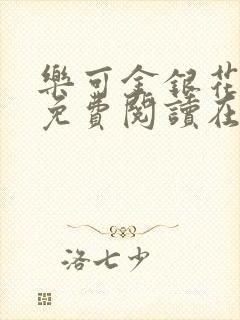 樂可金銀花
免費閱讀在
洛七少